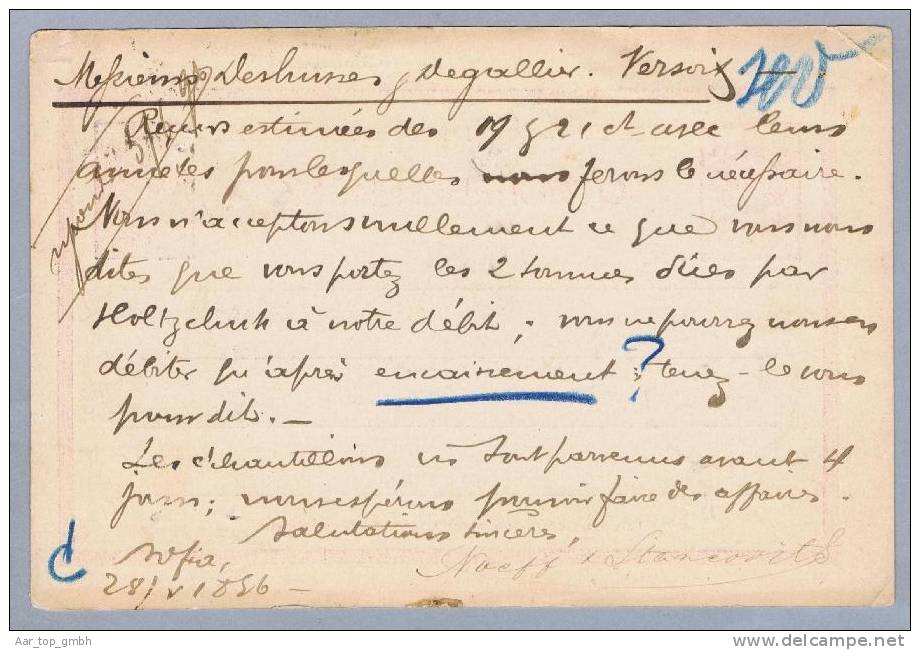 Messieurs Deshusses & Degallier. Versoix
2005
Reçu vos estimées des 19 & 21 ct. avec leurs
annexes pour lesquelles nous ferons le nécessaire.
Nous n'acceptons nullement ce que vous nous
dites que vous portez les 2 sommes dûes par
à notre débit; vous ne pourrez nous en
débiter qu'après encaissement; tenez-le vous
?
pour dit. —
Les échantillons ns sont parvenus avant 4
jours; nous espérons pouvoir faire des affaires.
Salutations sincères,
Sofia,
28/V 1896
Naeff & Stancovits
Aar_top_gmbh
www.delcampe.net